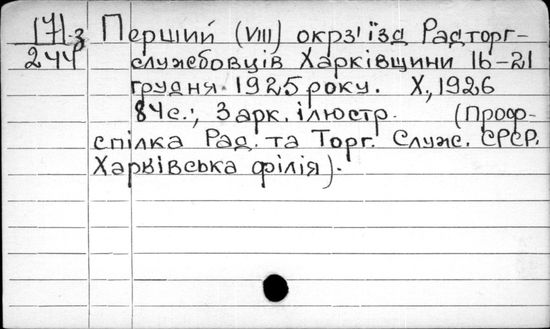 171-з Перший (VIII) окрз'їзд Радторг-
244 службовців Харківщини 16-21
грудня 1925 року. Х., 1926
84с.; 3 арк. ілюстр. (Проф-
спілка Рад. та Торг. Служ. СРСР.
Харківська філія).